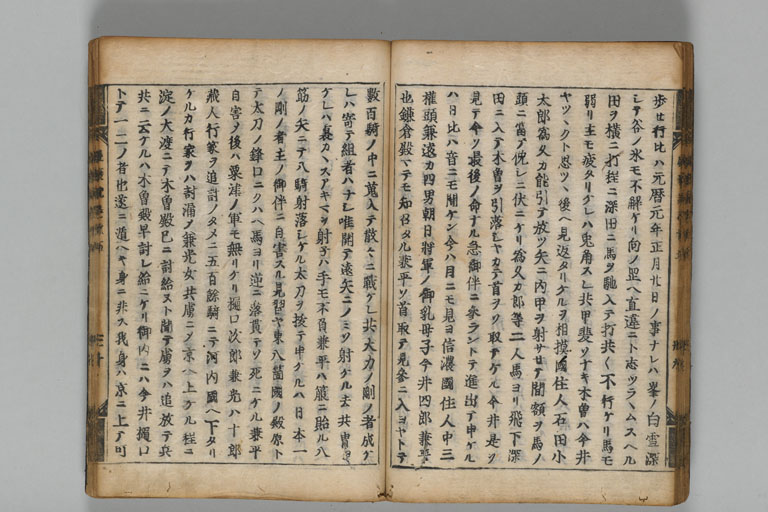 歩セ行比ハ元暦元年正月廿日ノ事ナレハ峯ノ白雪深
シテ谷ノ氷モ不解ケリ向ノ罡ヘ直違ニト志ツラヽムスヘル
田ヲ横ニ打程ニ深田ニ馬ヲ馳入テ打共〱不行ケリ馬モ
弱リ主モ疲タリケレハ兎角スレ共甲斐ソナキ木曽ハ今井
ヤツヽクト思ツヽ後ヘ見返タリケルヲ相摸國住人石田小
太郎爲久カ能引テ放ツ矢ニ内甲ヲ射サセテ間額ヲ馬ノ
頭ニ當テ俛シニ伏ニケリ爲久カ郎等二人馬ヨリ飛下深
田ニ入テ木曽ヲ引落シヤカテ首ヲソ取テケル今井是ヲ
見テ今ソ最後ノ命ナル急御伴ニ參ラントテ進出テ申ケル
ハ日比ハ音ニモ聞ケン今ハ目ニモ見ヨ信濃國住人中三
權頭兼遠カ四男朝日將軍ノ御乳母子今井四郎兼平
也鎌倉殿マテモ知召タル兼平ソ首取テ見參ニ入ヨヤトテ
數百騎ノ中ニ蒐入テ散々ニ戰ケレ共大力ノ剛ノ者成ケ
レハ寄テ組者ハナシ唯開テ遠矢ニノミソ射ケル去共冑ヨ
ケレハ裏カヽスアキマヲ射子ハ手モ不負兼平ハ箙ニ貽ル八
筋ノ矢ニテ八騎射落シケル太刀ヲ抜テ申ケルハ日本一
ノ剛ノ者主ノ御伴ニ自害スル見習ヤ東八箇國ノ殿原ト
テ太刀ノ鋒口ニクハヘ馬ヨリ逆ニ落貫テソ死ニケル兼平
自害ノ後ハ粟津ノ軍モ無リケリ樋口次郎兼光ハ十郎
藏人行家ヲ追討ノタメニ五百餘騎ニテ河内國ヘ下タリ
ケルカ行家ヲハ討漏シ兼光女共虜ニシ京ヘ上ケル程ニ
淀ノ大渡ニテ木曽殿已ニ討給ヌト聞テ虜ヲハ追放テ兵
共ニ云ケルハ木曽殿早討レ給ニケリ御内ニハ今井樋口
トテ一二ノ者也遂ニ遁ヘキ身ニ非ス我身ハ京ニ上テ可